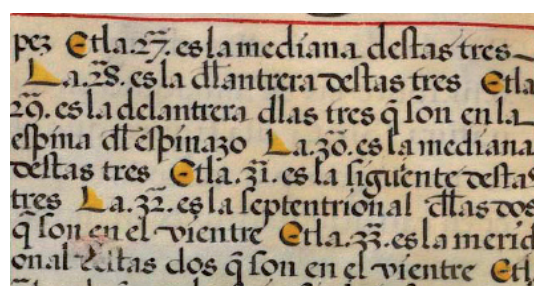 pez Et la .27. es la mediana destas tres
La .28. es la dlantrera destas tres Et la
29. es la delantrera dlas tres q̃ son en la
espina dl espinazo La .30. es la mediana
destas tres Et la .31. es la siguente destas
tres La .32. es la septentrional dlas dos
q̃ son en el vientre Et la .33. es la merid
ional destas dos q̃ son en el vientre Et l